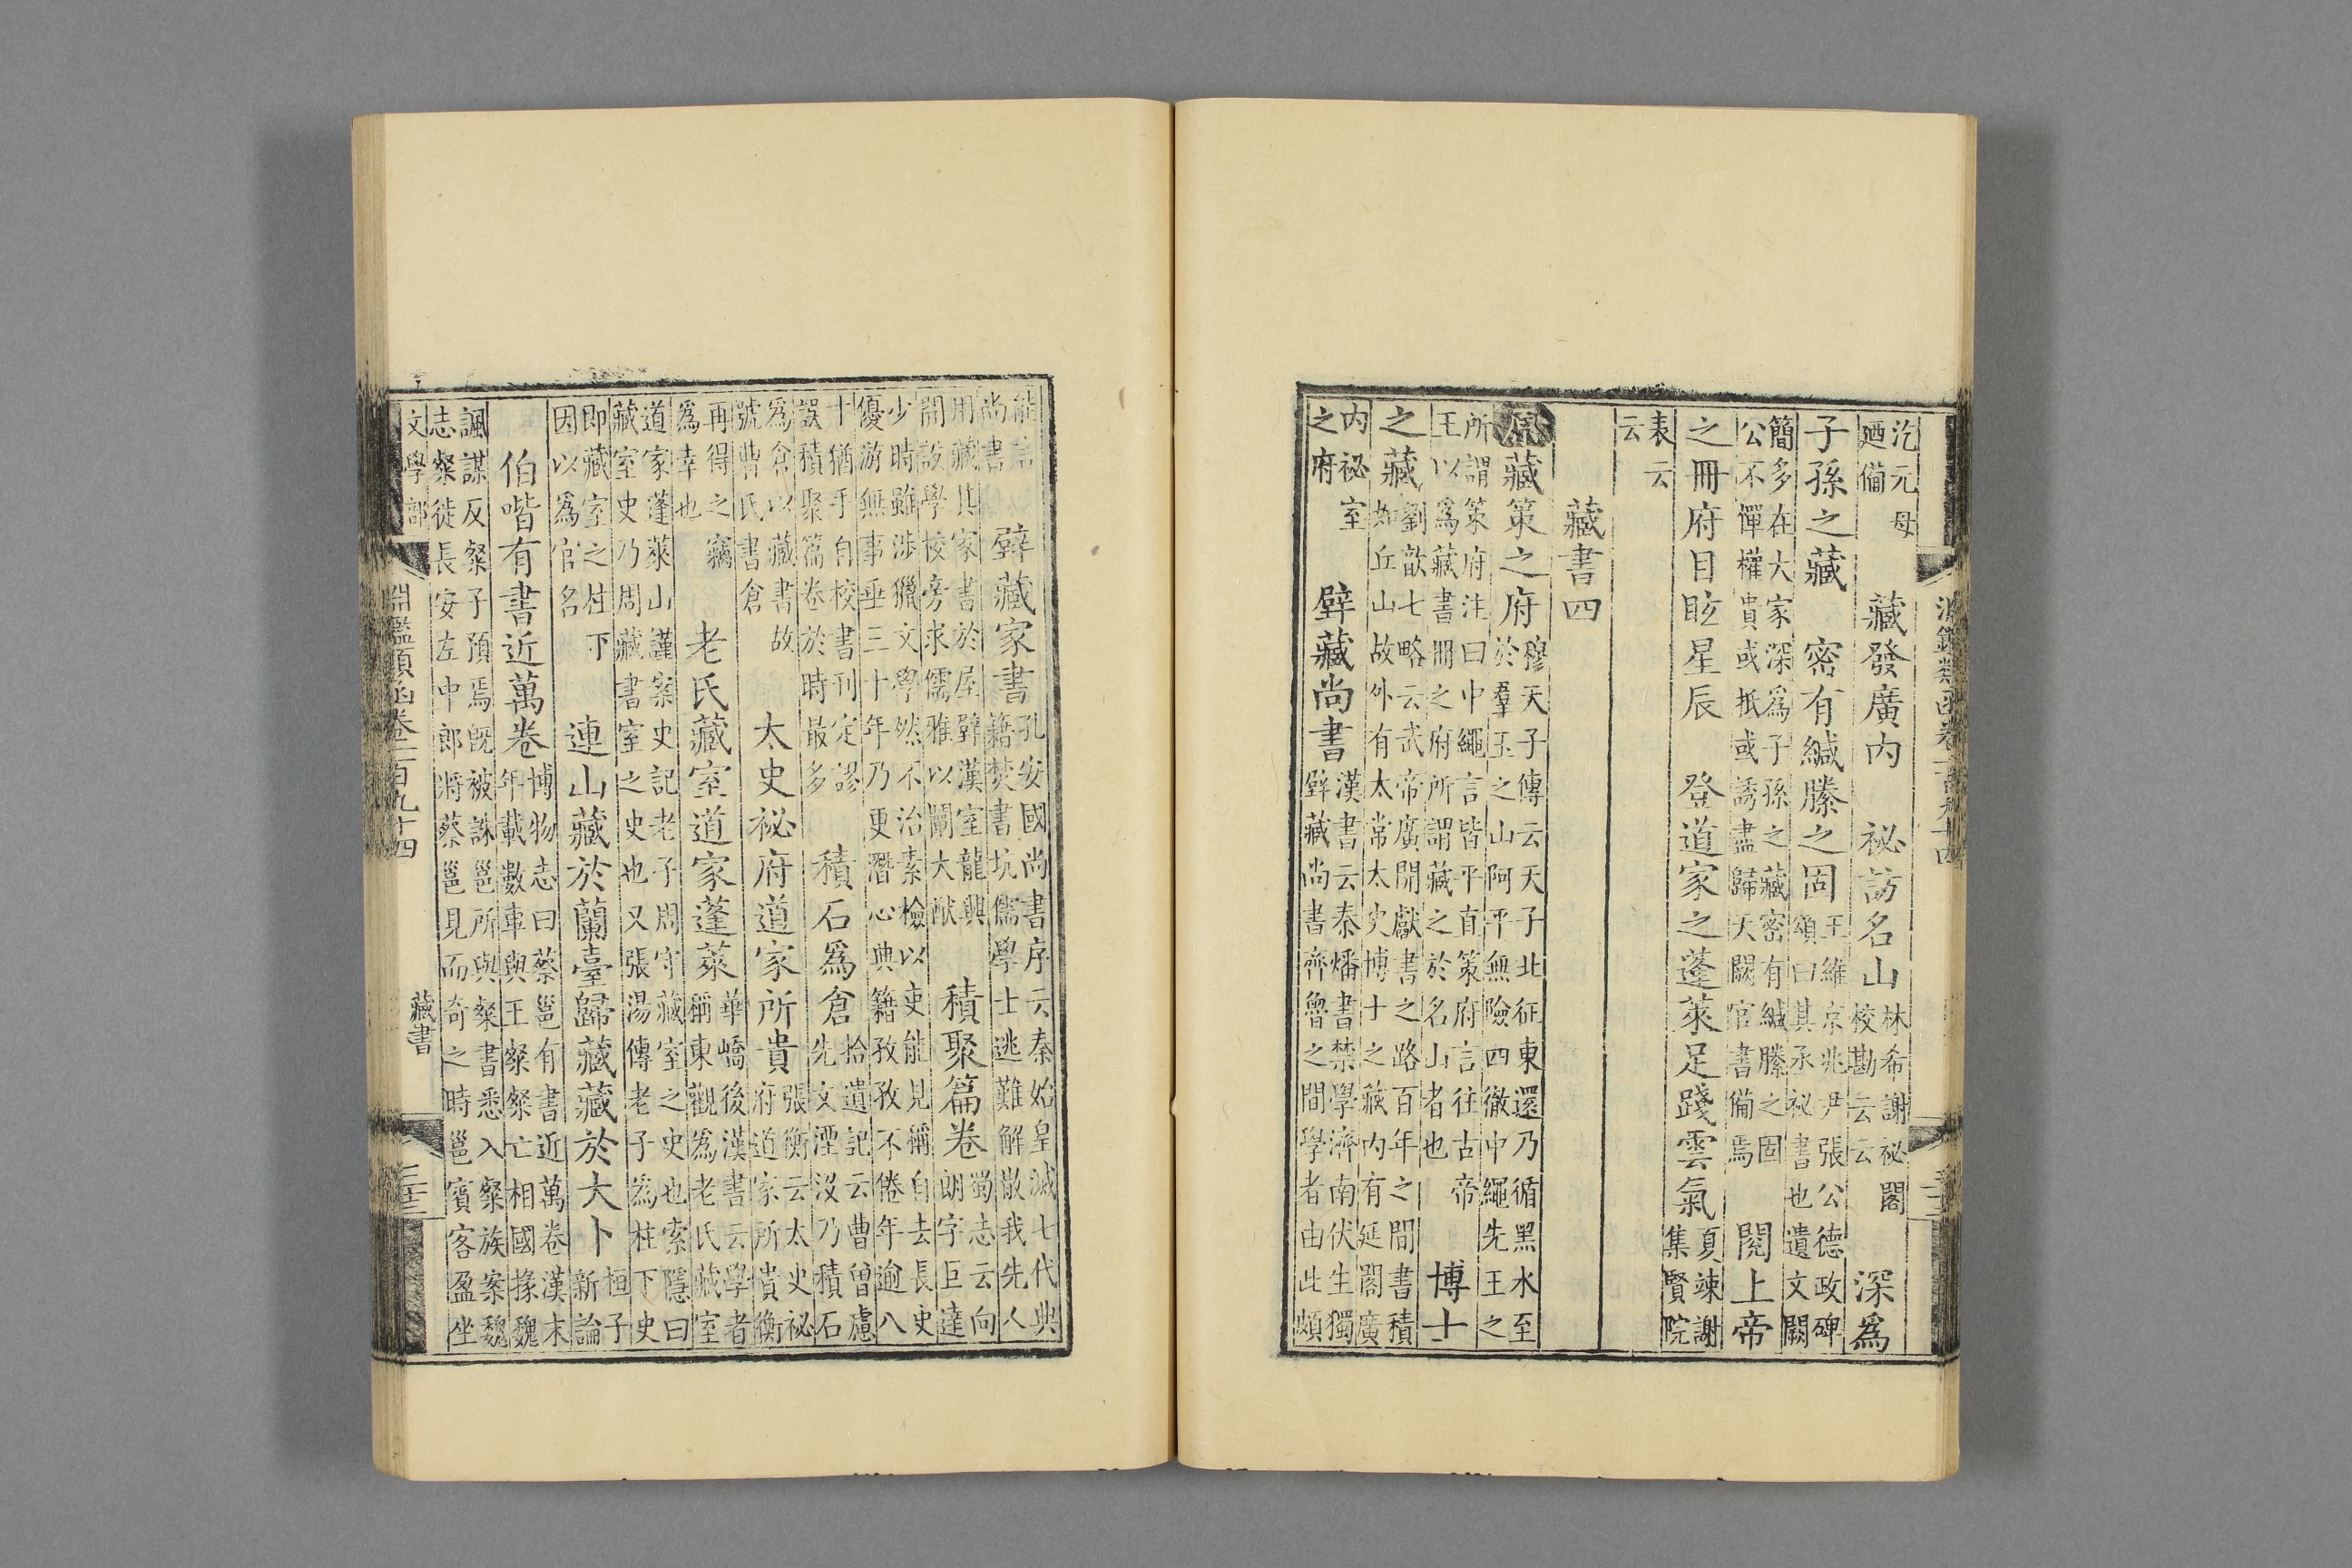 淵鑑類函卷一百九十四
汔元母
廼備
藏發廣内　祕訪名山
林希謝祕閣
校勘云云
深爲
子孫之藏　密有緘縢之固
王維京兆尹張公德政碑
頌曰其丞祕書也遺文闕
簡多在大家深爲子孫之藏密有緘縢之固
公不憚權貴或抵或誘盡歸天闕官書備焉
閱上帝
之冊府目眩星辰　登道家之蓬萊足踐雲氣
夏竦謝
集賢院
表云
云
藏書四
原藏策之府
穆天子傳云天子北征東還乃循黑水至
於羣玉之山阿平無險四徹中繩先王之
所謂策府注曰中繩言皆平直策府言往古帝
王以爲藏書冊之府所謂藏之於名山者也
博士
之藏
劉歆七略云武帝廣開獻書之路百年之間書積
如丘山故外有太常太史博士之藏内有延閣廣
内祕室
之府
壁藏尚書
漢書云秦燔書禁學濟南伏生獨
壁藏尚書齊魯之間學者由此頗
能言
尚書
壁藏家書
孔安國尚書序云秦始皇滅七代典
籍焚書坑儒學士逃難解散我先人
用藏其家書於屋壁漢室龍興
開設學校旁求儒雅以闡大猷
積聚篇卷
蜀志云向
朗字巨達
少時雖涉獵文學然不治素檢以吏能見稱自去長史
優游無事垂三十年乃更潛心典籍孜孜不倦年逾八
十猶手自校書刊定謬
誤積聚篇卷於時最多
積石爲倉
拾遺記云曹曾慮
先文湮没乃積石
爲倉以藏書故
號曹氏書倉
太史祕府道家所貴
張衡云太史祕
府道家所貴衡
再得之竊
爲幸也
老氏藏室道家蓬萊
華嶠後漢書云學者
稱東觀爲老氏藏室
道家蓬萊山謹案史記老子周守藏室之史也索隱曰
藏室史乃周藏書室之史也又張湯傳老子爲柱下史
即藏室之柱下
因以爲官名
連山藏於蘭臺歸藏藏於大卜
桓子
新論
伯喈有書近萬卷
博物志曰蔡邕有書近萬卷漢末
年載數車與王粲粲亡相國掾魏
諷謀反粲子預焉旣被誅邕所與粲書悉入粲族案魏
志粲徙長安左中郎將蔡邕見而奇之時邕賓客盈坐
文學部
淵鑑類函卷一百九十四
藏書
二十三